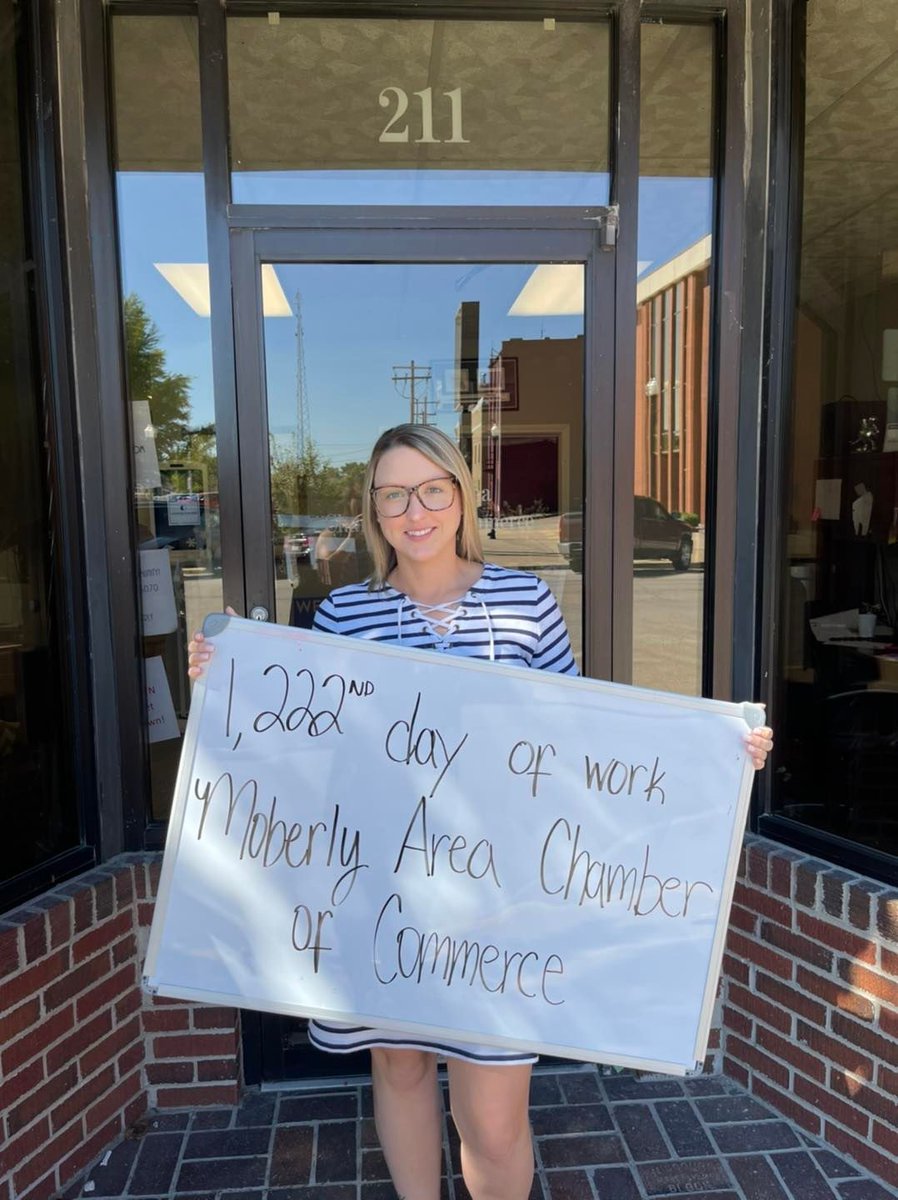 211
1,222ND day of work
4 Moberly Area Chamber
of Commerce
WE